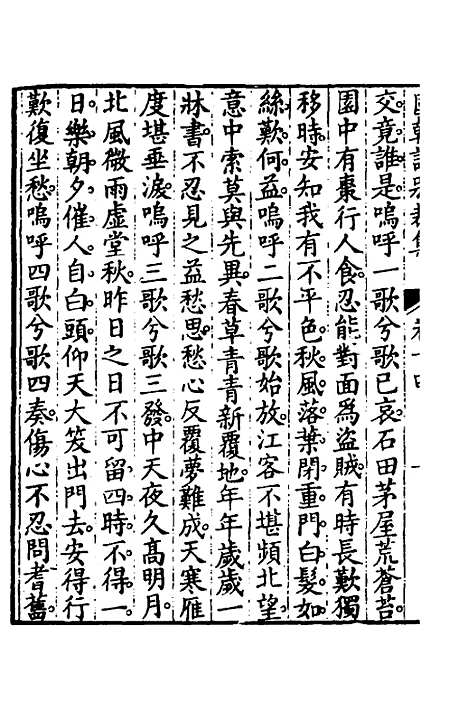 國朝詩別裁集 卷十四 一
交。竟誰是。嗚呼一歌兮歌已哀。石田茅屋荒蒼苔。
園中有棗行人食。忍能對面爲盜賊。有時長歎獨
移時。安知我有不平色。秋風落葉閉重門。白髮如
絲歎何益。嗚呼二歌兮歌始放。江客不堪頻北望。
意中索莫與先異。春草青青新覆地。年年歲歲一
牀書。不忍見之益愁思。愁心反覆夢難成。天寒雁
度堪垂淚。嗚呼三歌兮歌三發。中天夜久高明月。
北風微雨虛堂秋。昨日之日不可留。四時不得一
日樂。朝夕催人自白頭。仰天大笑出門去。安得行
歎復坐愁。嗚呼四歌兮歌四奏。傷心不忍問耆舊。